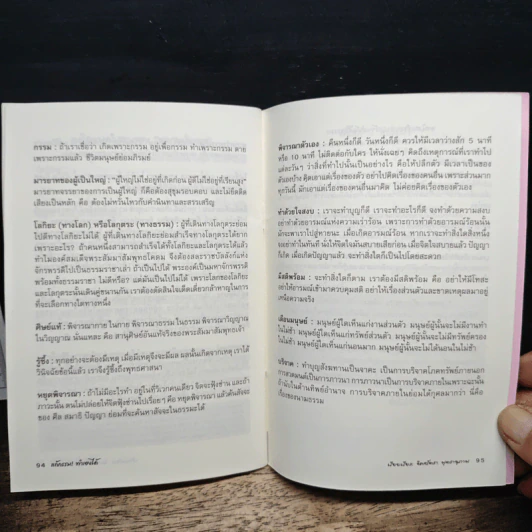 กรรม : ถ้าเราเชื่อว่า เกิดเพราะกรรม อยู่เพื่อกรรม ทำเพราะกรรม ตาย
เพราะกรรมแล้ว ชีวิตมนุษย์ย่อมภิรมย์
มารยาทของผู้เป็นใหญ่ : "ผู้ใหญ่ไม่ใช่อยู่ที่เกิดก่อน ผู้ดีไม่ใช่อยู่ที่เรียนสูง"
มารยาทจรรยาของการเป็นผู้ใหญ่ ก็คือต้องสุขุมรอบคอบ และไม่ยึดติด
เสียงเป็นหลัก คือ ต้องไม่หวั่นไหวกับคำนินทาและสรรเสริญ
โลกียะ (ทางโลก) หรือโลกุตระ (ทางธรรม) : ผู้ที่เดินทางโลกุตระย่อม
ไปดีทางโลกียะไม่ได้ ผู้ที่เดินทางโลกียะย่อมสำเร็จทางโลกุตระได้ยาก
เพราะอะไร? ถ้าคนหนึ่งสามารถสำเร็จได้ทั้งโลกียะและโลกุตระได้แล้ว
ทำไมองค์สมเด็จพระสัมมาสัมพุทธโคดม จึงต้องสละราชบัลลังก์แห่ง
จักรพรรดิไปเป็นธรรมราชาเล่า ถ้าเป็นไปได้ พระองค์เป็นมหาจักรพรรดิ
พร้อมทั้งธรรมราชา ไม่ดีหรือ? แต่มันเป็นไปไม่ได้ เพราะโลกของโลกียะ
และโลกุตระนั้นเดินคู่ขนานกัน เราต้องตัดสินใจเด็ดเดี่ยวกล้าหาญในการ
ที่จะเลือกทางใดทางหนึ่ง
ศิษย์แท้ : พิจารณากายในกาย พิจารณาธรรมในธรรม พิจารณาวิญญาณ
ในวิญญาณ นั่นแหละ คือ สานุศิษย์อันแท้จริงของพระสัมมาสัมพุทธเจ้า
รู้ซึ้ง : ทุกอย่างจะต้องมีเหตุ เมื่อมีเหตุจึงจะมีผล ผลนั้นเกิดจากเหตุ เราได้
วินิจฉัยข้อนี้แล้ว เราจึงรู้ซึ้งถึงพุทธศาสนา
หยุดพิจารณา : ถ้าไม่มีอะไรทำ อยู่ในที่วิเวกคนเดียว จิตจะฟุ้งซ่าน และถ้า
ภาวะนั้น ตนไม่ปล่อยให้จิตฟุ้งซ่านไปเรื่อยๆ คือ หยุดพิจารณา แล้วค้นสิ่งจะ
ของ คือ สมาธิ ปัญญา ย่อมที่จะค้นหาสิ่งจะในธรรมะได้
94
พิจารณาตัวเอง : คืนหนึ่งก็ดี วันหนึ่งก็ดี ควรให้มีเวลาว่างสัก 5 นาที
หรือ 10 นาที ไม่ติดต่อกับใคร ให้นั่งเฉยๆ คิดถึงเหตุการณ์ที่เราทำไป
แต่ละวันๆ ว่าสิ่งที่ทำไปนั้นเป็นอย่างไร คือให้ปลีกตัว มีเวลาเป็นของ
ตัวเองบ้าง คิดเอาแต่เรื่องของตัว อย่าไปคิดเรื่องของคนอื่น เพราะส่วนมาก
ทุกวันนี้ มักเอาแต่เรื่องของคนอื่นมาคิด ไม่ค่อยคิดเรื่องของตัวเอง
ทำด้วยใจสงบ : เราจะทำบุญก็ดี เราจะทำอะไรก็ดี จงทำด้วยความสงบ
อย่าทำด้วยอารมณ์แห่งความเร่าร้อน เพราะการทำด้วยอารมณ์เร่าร้อน
มักจะพาเราไปสู่หายนะ เมื่อเกิดอารมณ์ร้อน หากเราจะทำสิ่งใดสิ่งหนึ่ง
จงอย่าทำในทันที
ก็เกิด เมื่อเกิดปัญญาแล้ว จะทำสิ่งใดก็เป็นไปโดยสะดวก
มีสติพร้อม : จะทำสิ่งใดก็ตาม เราต้องมีสติพร้อม คือ อย่าให้มีโทสะ
อย่าให้อารมณ์เข้ามาควบคุมสติ อย่าให้เรื่องส่วนตัวและขาดเหตุผลมาอยู่
เหนือความจริง
เตือนมนุษย์ : มนุษย์ผู้ใดเห็นแก่งานส่วนตัว มนุษย์ผู้นั้นจะไม่มีงานทำ
ในไม่ช้า มนุษย์ผู้ใดเห็นแก่ทรัพย์ส่วนตัว มนุษย์ผู้นั้นจะไม่มีทรัพย์ครอง
ในไม่ช้า มนุษย์ผู้ใดเห็นแก่นอนมาก มนุษย์ผู้นั้นจะไม่ได้นอนในไม่ช้า
บริจาค : ทำบุญสังฆทานเป็นจาคะ เป็นการบริจาคโภคทรัพย์ภายนอก
การสวดมนต์เป็นการภาวนา การภาวนาเป็นการบริจาคภายในเพราะฉะนั้น
ถ้านับในด้านทิพย์อำนาจ การบริจาคภายในย่อมได้กุศลมากกว่า นี่คือ
เรื่องของนามธรรม
95